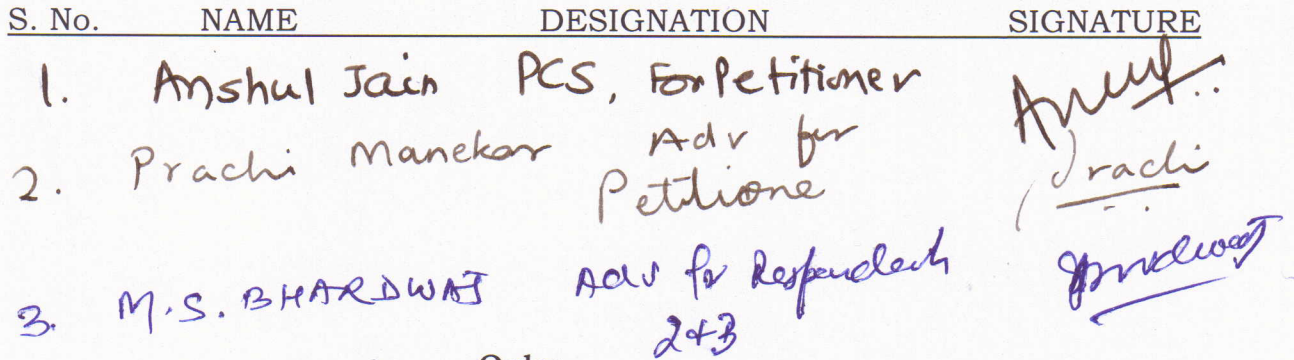 S. No. NAME DESIGNATION SIGNATURE
1. Anshul Jain PCS, For Petitioner
2. Prachi Manekar Adv for Petitione Prachi
3. M.S. BHARDWAJ Adv for Respondents 2&3